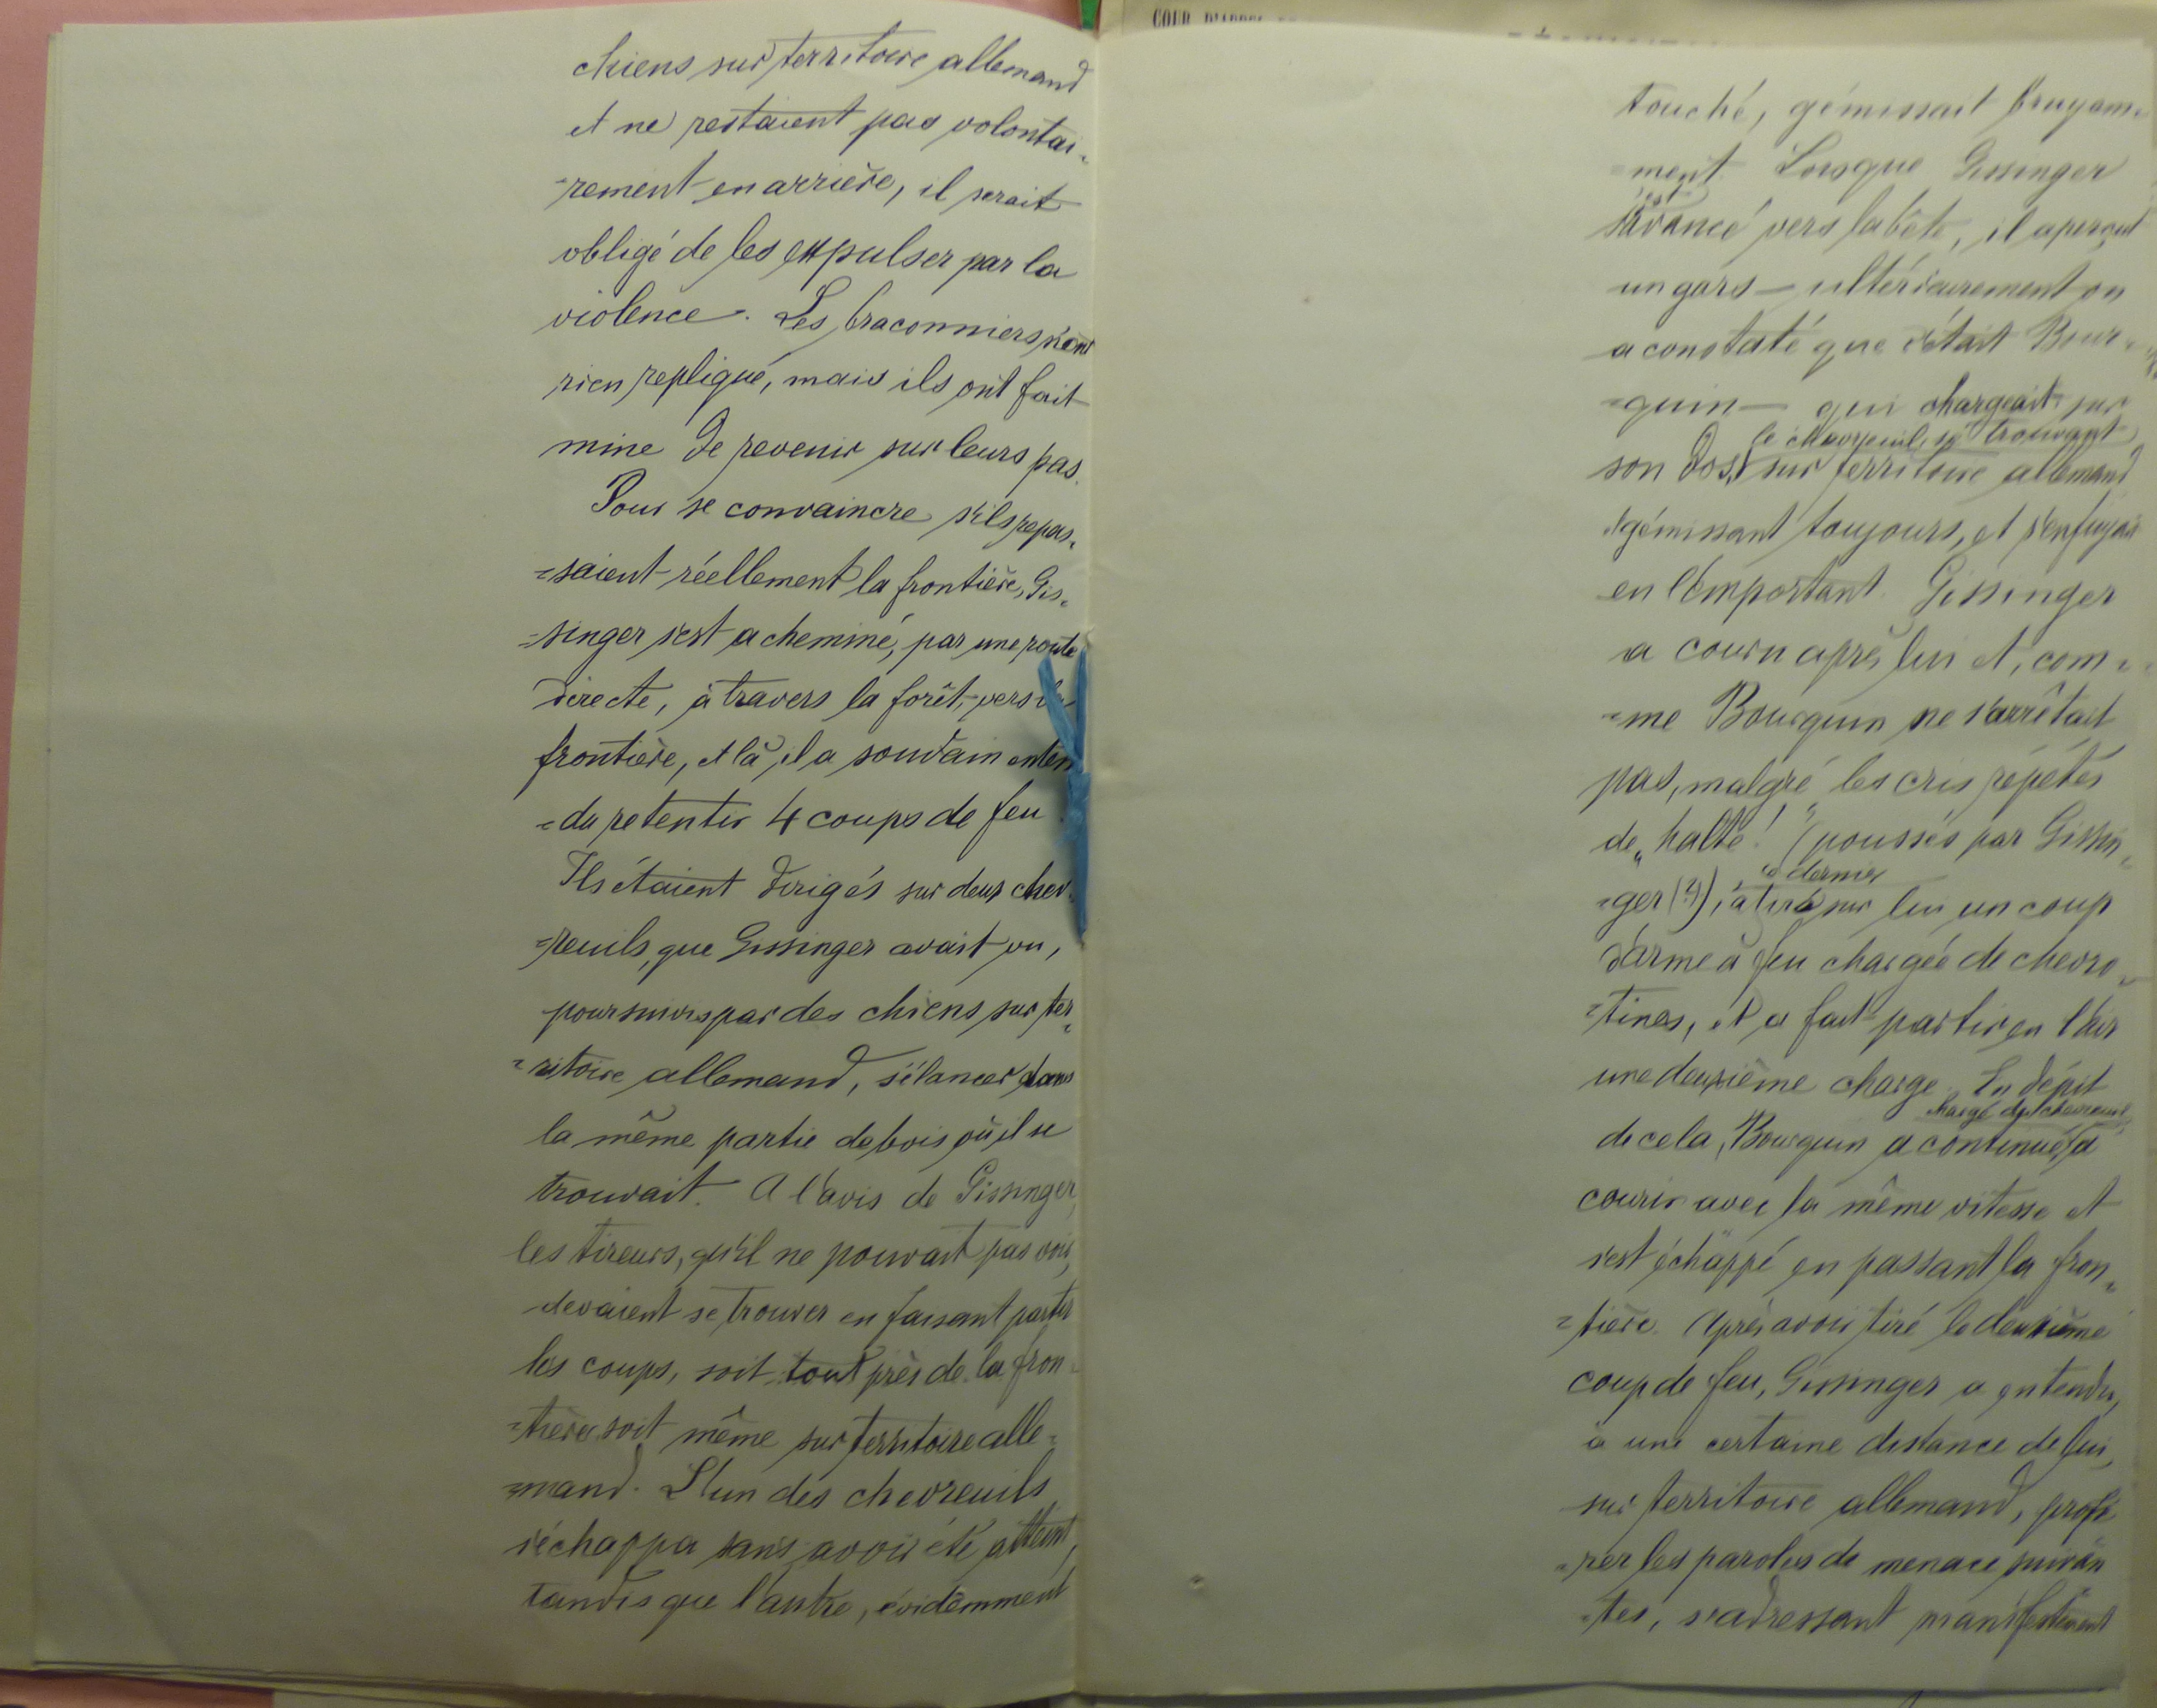 chiens sur territoire allemand
et ne restaient pas volontai-
-rement en arrière, il serait
obligé de les expulser par la
violence. Les braconniers n'ont
rien repliqué, mais ils ont fait
mine de revenir sur leurs pas.
Pour se convaincre s'ils repas-
=saient réellement la frontière, Gis-
=singer s'est acheminé, par une route
directe, à travers la forêt, vers la
frontière, et là, il a soudain enten
=du retentir 4 coups de feu.
Ils étaient dirigés sur deux chev-
=reuils, que Gissinger avait vu,
poursuivis par des chiens sur ter-
=ritoire allemand, s'élancer dans
la même partie de bois où il se
trouvait. A l'avis de Gissinger,
les tireurs, qu'il ne pouvait pas voir,
devaient se trouver en faisant partir
les coups, soit tout près de la fron-
=tière, soit même sur territoire alle-
=mand. L'un des chevreuils
s'échappa sans avoir été atteint,
tandis que l'autre, évidemment
COUR D'APPEL
touché, gémissait bruyam-
=ment. Lorsque Gissinger
s'est
avancé vers la bête, il aperçut
un gars — ultérieurement on
a constaté que c'était Bour-
=quin — qui chargeait sur
le chevreuil, se trouvant
son dos, sur territoire allemand
et gémissant toujours, et s'enfuyait
en l'emportant. Gissinger
a couru après lui et, com-
=me Bourquin ne s'arrêtait
pas, malgré les cris répétés
de „halte!" (poussés par Gissin-
ce dernier
=ger (?)), a tiré sur lui un coup
d'arme à feu chargée de chevro-
=tines, et a fait partir en l'air
une deuxième charge. En dépit
chargé du chevreuil,
de cela, Bourquin a continué, à
courir avec la même vitesse et
s'est échappé en passant la fron-
=tière. Après avoir tiré le deuxième
coup de feu, Gissinger a entendu,
à une certaine distance de lui,
sur territoire allemand, profé
=rer les paroles de menace suivan
=tes, s'adressant manifestement